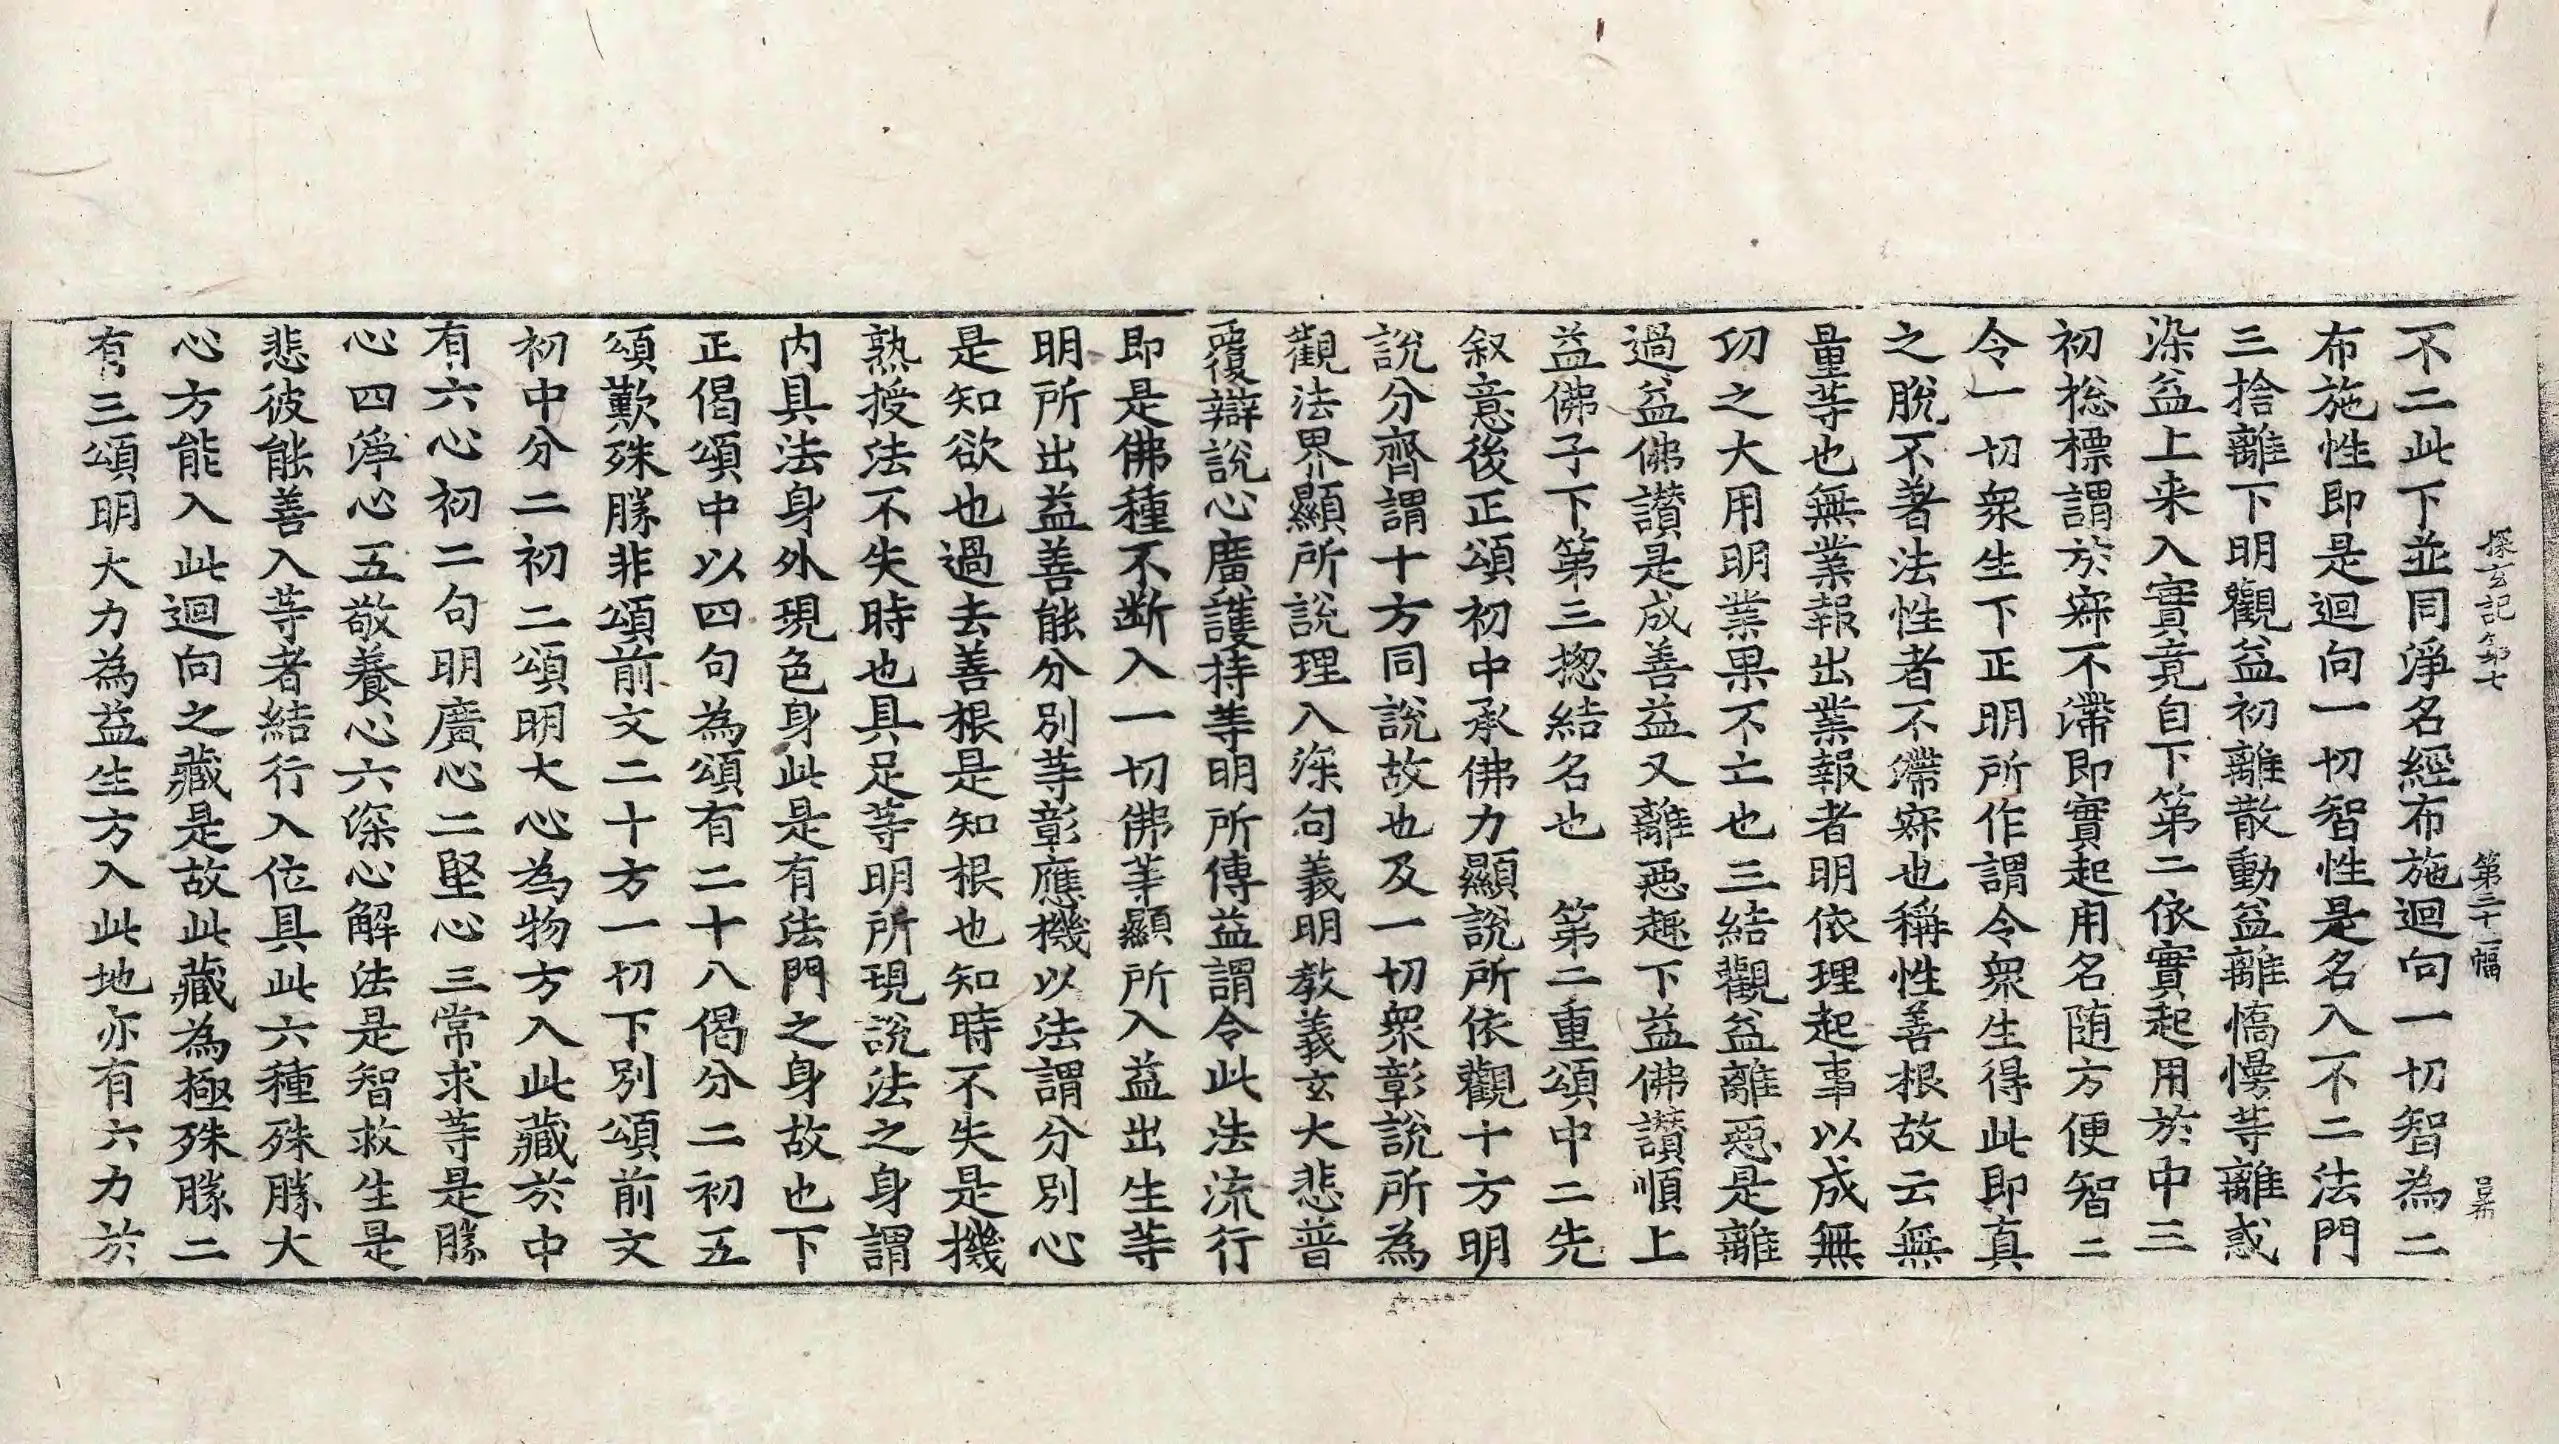 探玄記第七 第二十一幅 呂布
不二此下並同淨名經布施迴向一切智為二
布施性即是迴向一切智性是名入不二法門
三捨離下明觀益初離散動益離憍慢等離惑
染益上来入實竟自下第二依實起用於中三
初捴標謂於寂不滯即實起用名随方便智二
令一切衆生下正明所作謂令衆生得此即真
之脫不著法性者不滯寂也稱性善根故云無
量等也無業報出業報者明依理起事以成無
功之大用明業果不亡也三結觀益離惡是離
過益佛讃是成善益又離惡趣下益佛讃順上
益佛子下第三揔結名也　第二重頌中二先
叙意後正頌初中承佛力顯說所依觀十方明
說分齊謂十方同說故也及一切衆彰說所為
觀法界顯所說理入深句義明教義玄大悲普
覆辯說心廣護持等明所傳益謂令此法流行
即是佛種不断入一切佛等顯所入益出生等
明所出益善能分別等彰應機以法謂分別心
是知欲也過去善根是知根也知時不失是機
熟授法不失時也具足等明所現說法之身謂
内具法身外現色身此是有法門之身故也下
正偈頌中以四句為頌有二十八偈分二初五
頌歎殊勝非頌前文二十方一切下別頌前文
初中分二初二頌明大心為物方入此藏於中
有六心初二句明廣心二堅心三常求等是勝
心四淨心五敬養心六深心解法是智救生是
悲彼能善入等者結行入位具此六種殊勝大
心方能入此迴向之藏是故此藏為極殊勝二
有三頌明大力為益生方入此地亦有六力於